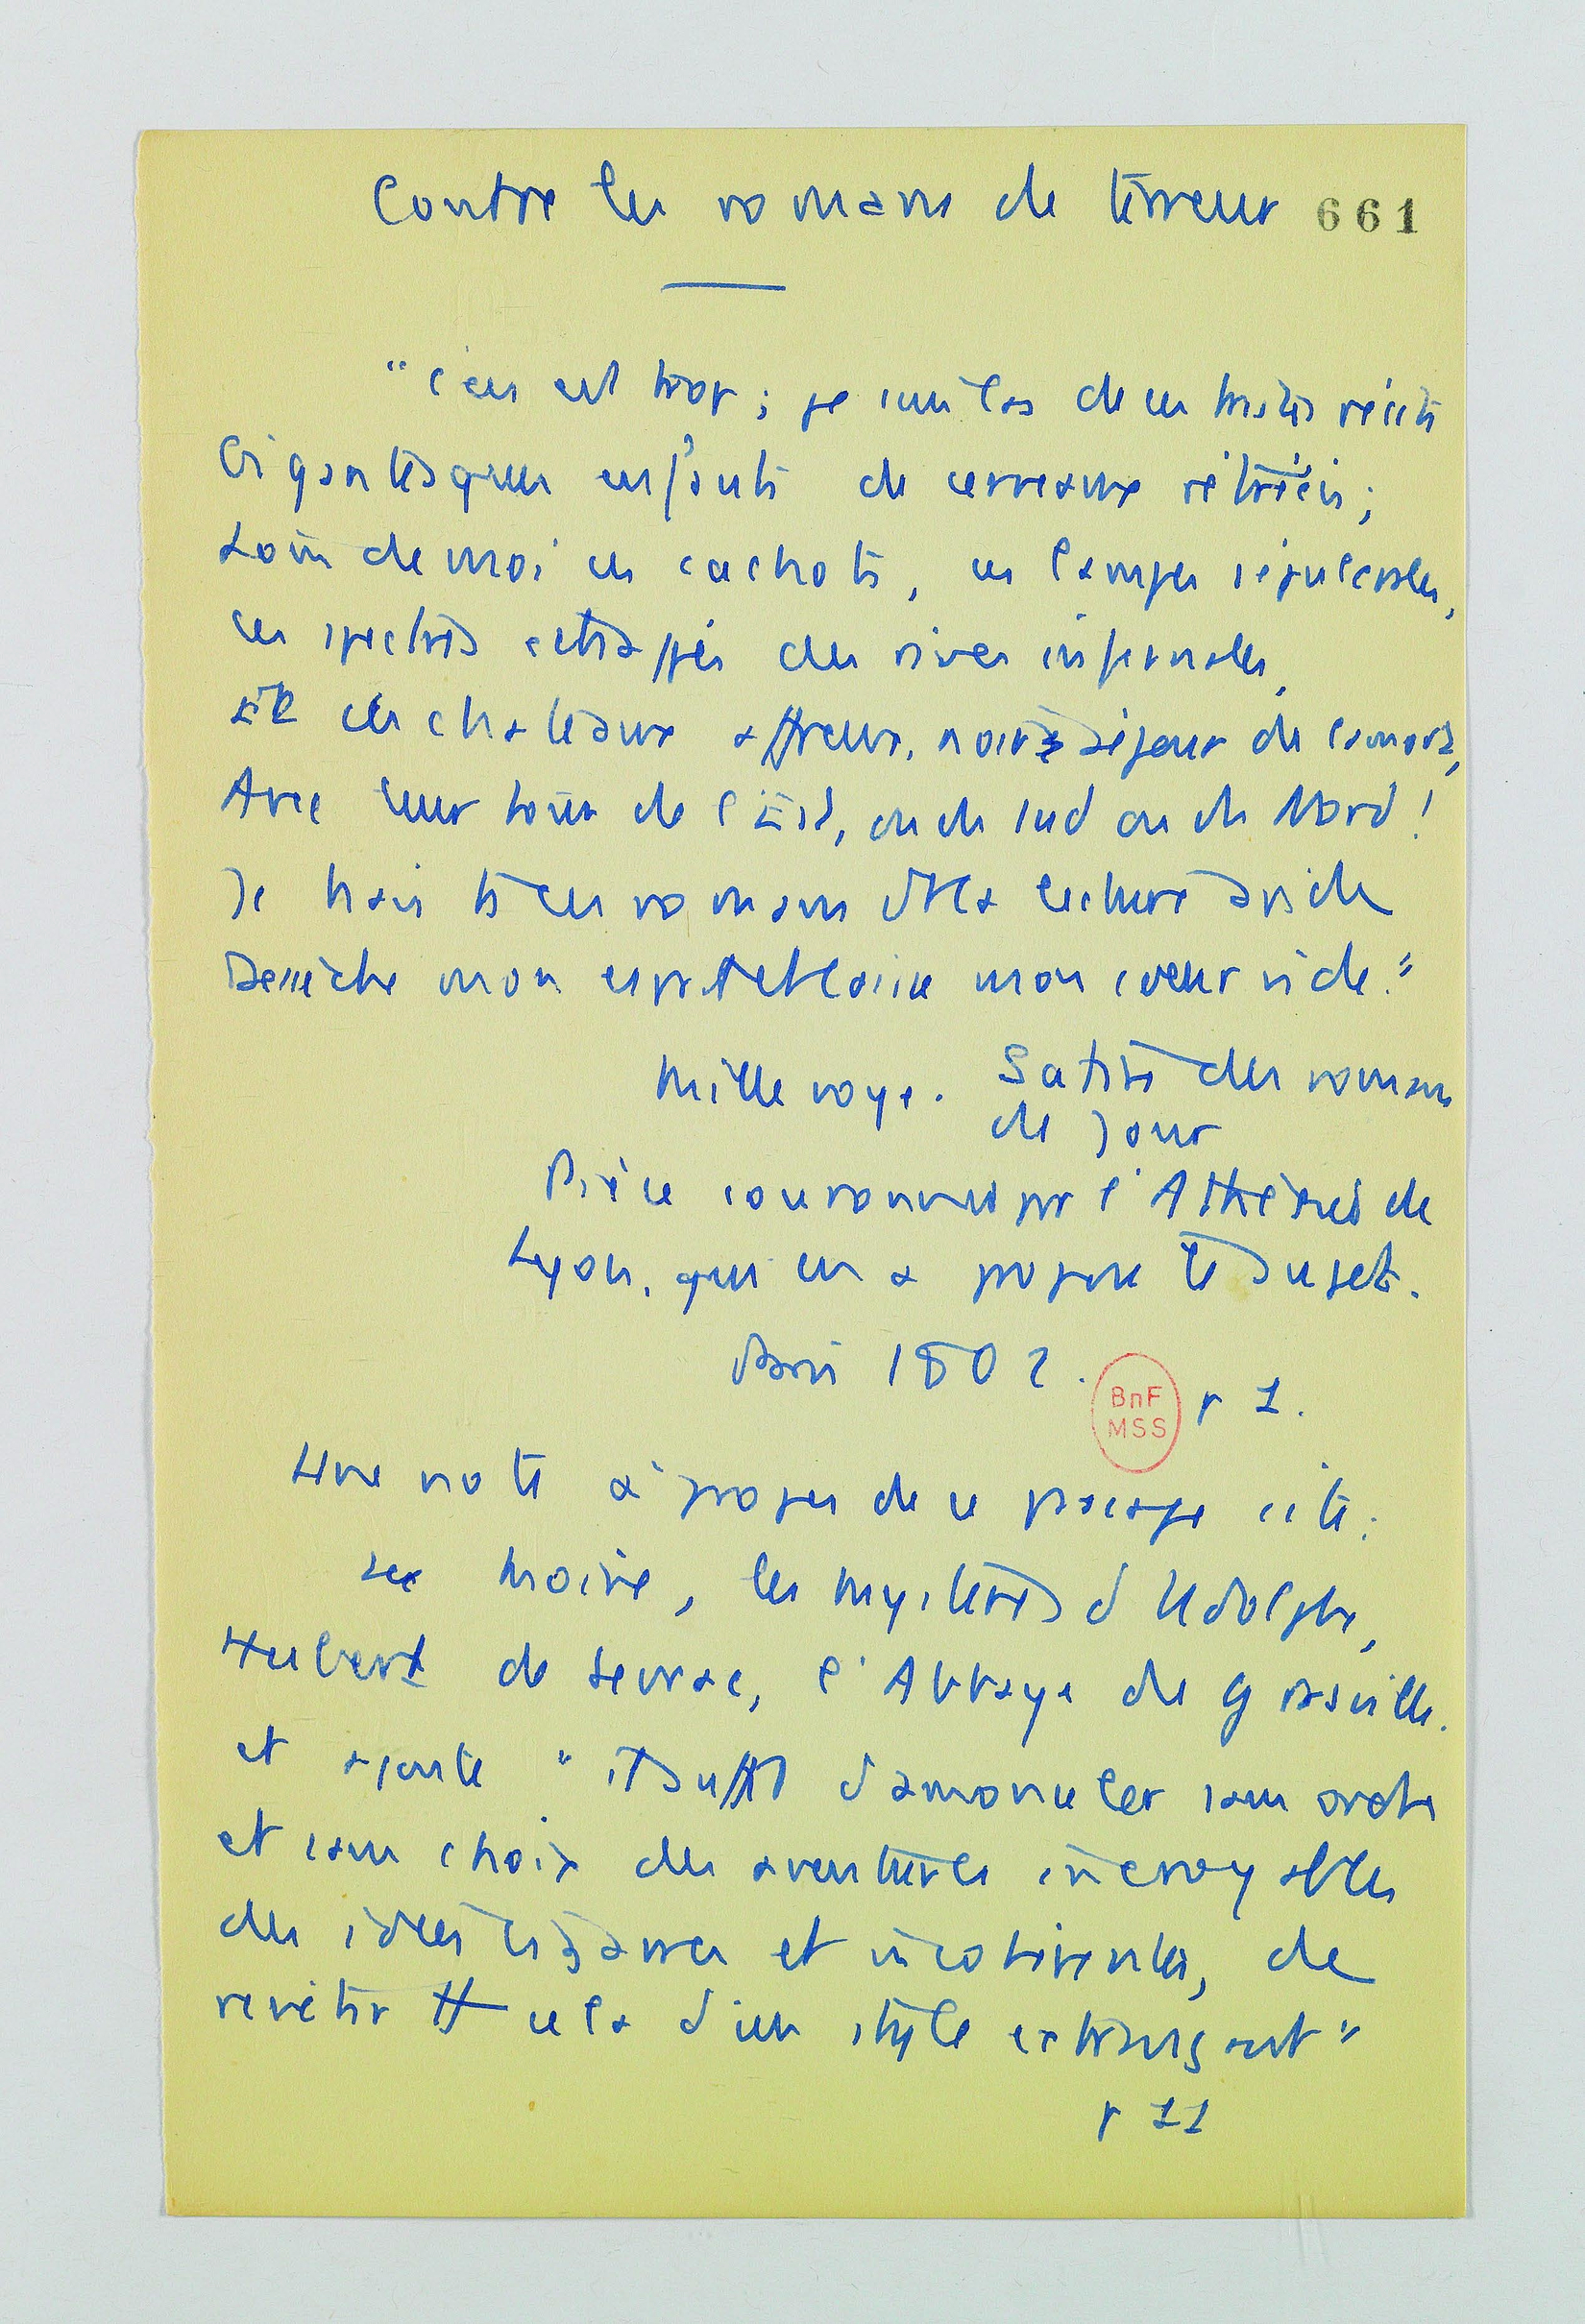 Contre les romans de terreur 661
"C'en est trop ; je suis las de ces tristes récits
Gigantesques enfants de cerveaux rétrécis ;
Loin de moi ces cachots, ces lampes sépulcrales,
ces spectres échappés des rives infernales,
Et ces chateaux affreux, noirs séjour de la mort,
Avec leur tour de l'Est, ou du Sud ou du Nord !
Je hais tous ces romans dont la lecture aride
Dessèche mon esprit et laisse mon coeur vide."
Millevoye. Satire des romans
du Jour
Pièce couronnée par l'Athénée de
Lyon, qui en a proposé le sujet.
Paris 1802. p 1.
BnF
MSS
Une note à propos de ce passage cite :
Le Moine, les Mystères d'Udolphe,
Hubert de Sevrac, l'Abbaye de Grasville.
et ajoute "il suffit d'amonceler sans ordre
et sans choix des aventures incroyables
des idées bizarres et incohérentes, de
revêtir tt cela d'un style extravagant"
p 11